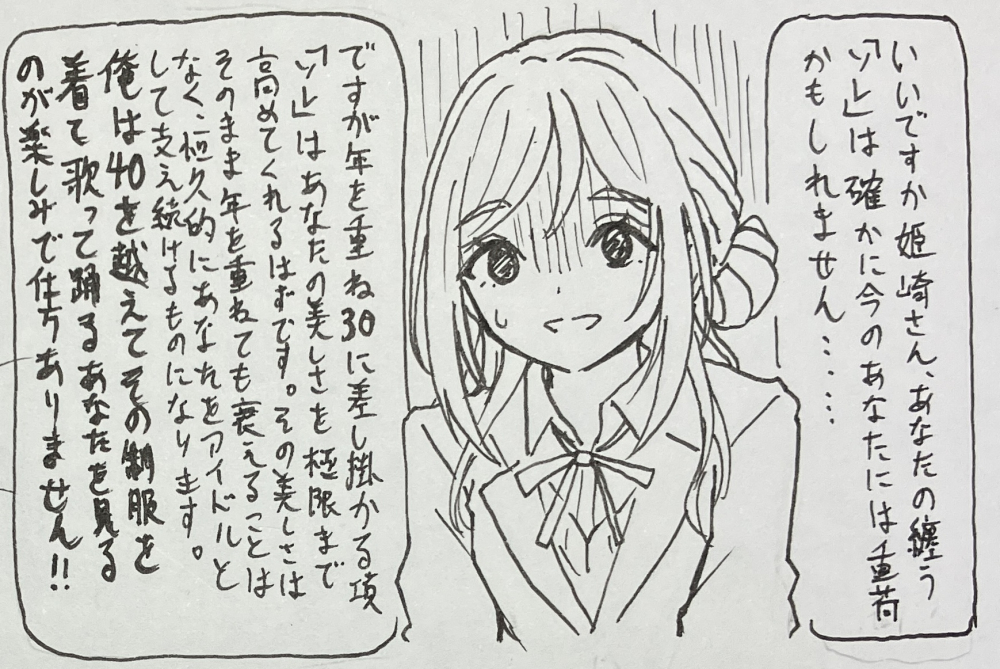 いいですか姫崎さん、あなたの纏う
「ソレ」は確かに今のあなたには重荷
かもしれません‥‥‥
ですが年を重ね30に差し掛かる項
「ソレ」はあなたの美しさを極限まで
高めてくれるはずです。その美しさは
そのまま年を重ねても衰えることは
なく、恒久的にあなたをアイドルと
して支え続けるものになります。
俺は40を越えてその制服を
着て歌って踊るあなたを見る
のが楽しみで仕方ありません!!